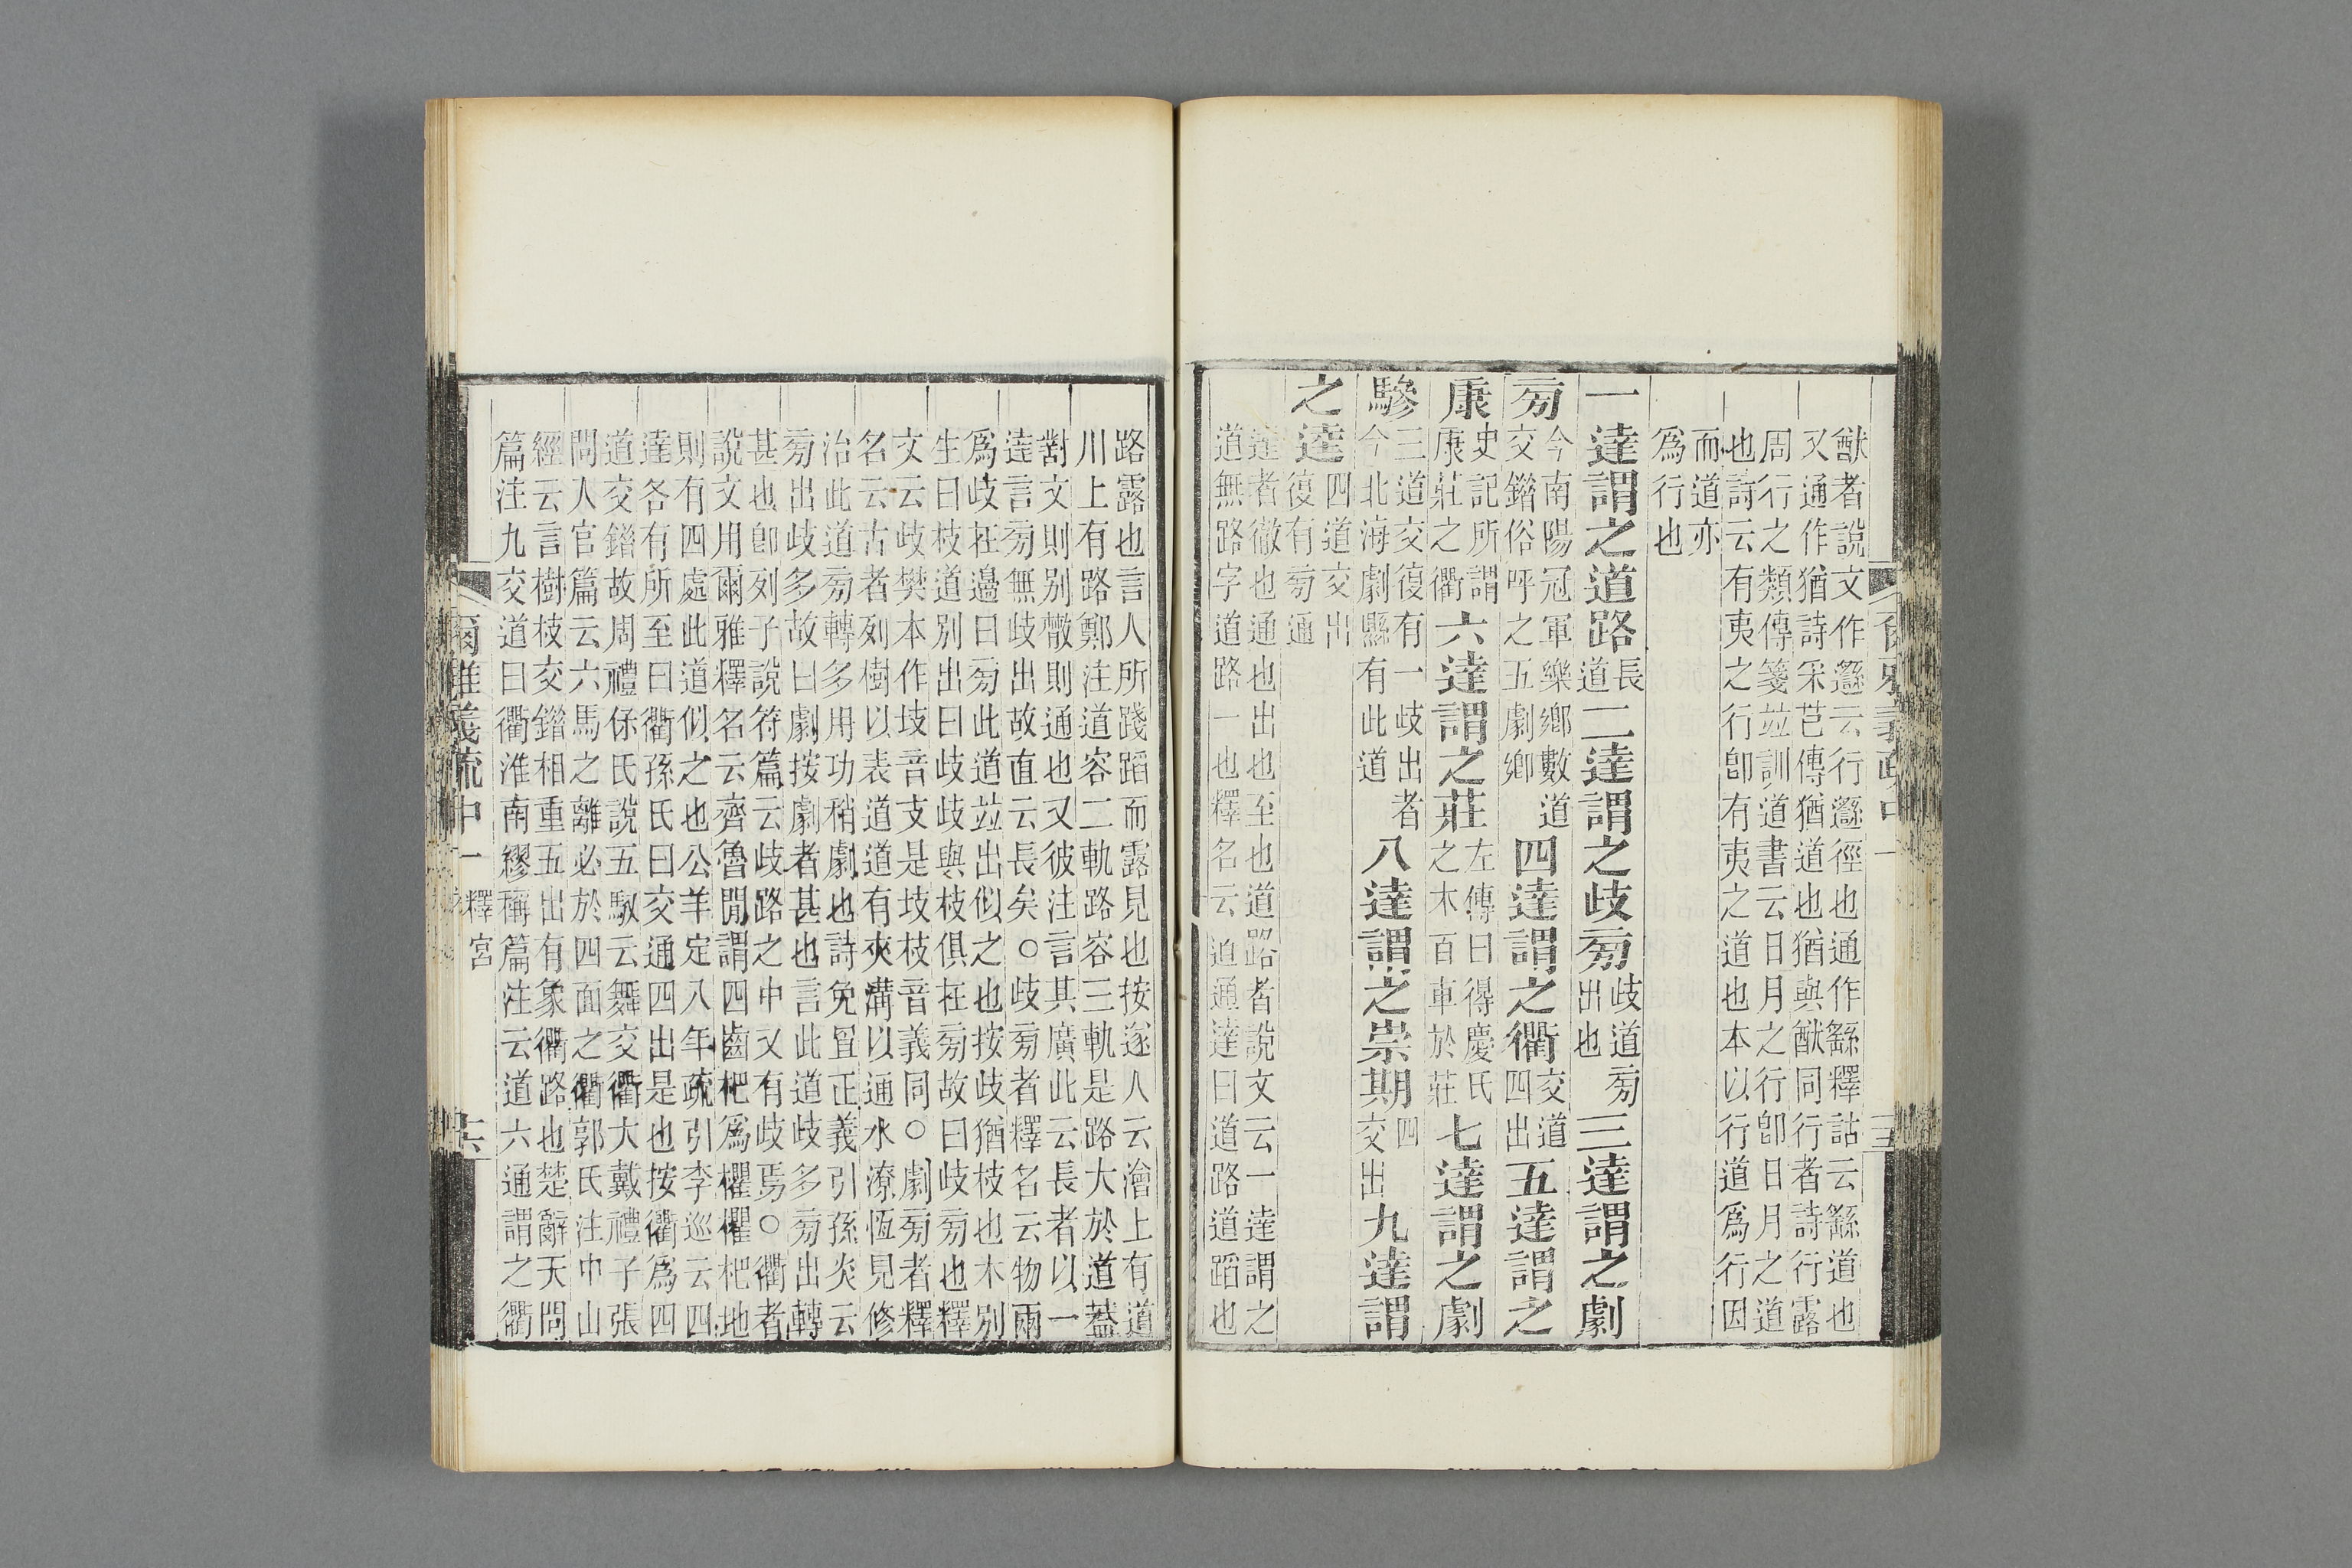 猷者說文作邎云行邎徑也通作繇釋詁云繇道也
又通作猶詩采芑傳猶道也猶與猷同行者詩行露
周行之類傳箋竝訓道書云日月之行卽日月之道
也詩云有夷之行卽有夷之道也本以行道爲行因
而道亦
爲行也
一達謂之道路長道二達謂之歧旁歧道旁出也三達謂之劇
旁今南陽冠軍樂鄉數道交錯俗呼之五劇鄉四達謂之衢交道四出五達謂之
康史記所謂康莊之衢六達謂之莊左傳曰得慶氏之木百車於莊七達謂之劇
驂三道交復有一歧出者今北海劇縣有此道八達謂之崇期四交出九達謂
之逵四道交出復有旁通
達者徹也通也出也至也道路者說文云一達謂之
道無路字道路一也釋名云道通達曰道路道蹈也
爾雅義疏中一
路露也言人所踐蹈而露見也按遂人云澮上有道
川上有路鄭注道容二軌路容三軌是路大於道葢
對文則別散則通也又彼注言其廣此云長者以一
達言旁無歧出故直云長矣○歧旁者釋名云物兩
爲歧在邊曰旁此道竝出似之也按歧猶枝也木別
生曰枝道別出曰歧歧與枝俱在旁故曰歧旁也釋
文云歧樊本作音支是枝音義同○劇旁者釋
名云古者列樹以表道道有夾溝以通水潦恆見修
治此道旁轉多用功稍劇也詩免罝正義引孫炎云
旁出歧多故曰劇按劇者甚也言此道歧多旁出轉
甚也卽列子說符篇云歧路之中又有歧焉○衢者
說文用爾雅釋名云齊魯閒謂四齒杷爲欋欋杷地
則有四處此道似之也公羊定八年疏引李巡云四
達各有所至曰衢孫氏曰交通四出是也按衢爲四
道交錯故周禮保氏說五馭云舞交衢大戴禮子張
問人官篇云六馬之離必於四面之衢郭氏注中山
經云言樹枝交錯相重五出有象衢路也楚辭天問
篇注九交道曰衢淮南繆稱篇注云道六通謂之衢
爾雅義疏中一 釋宮 十六